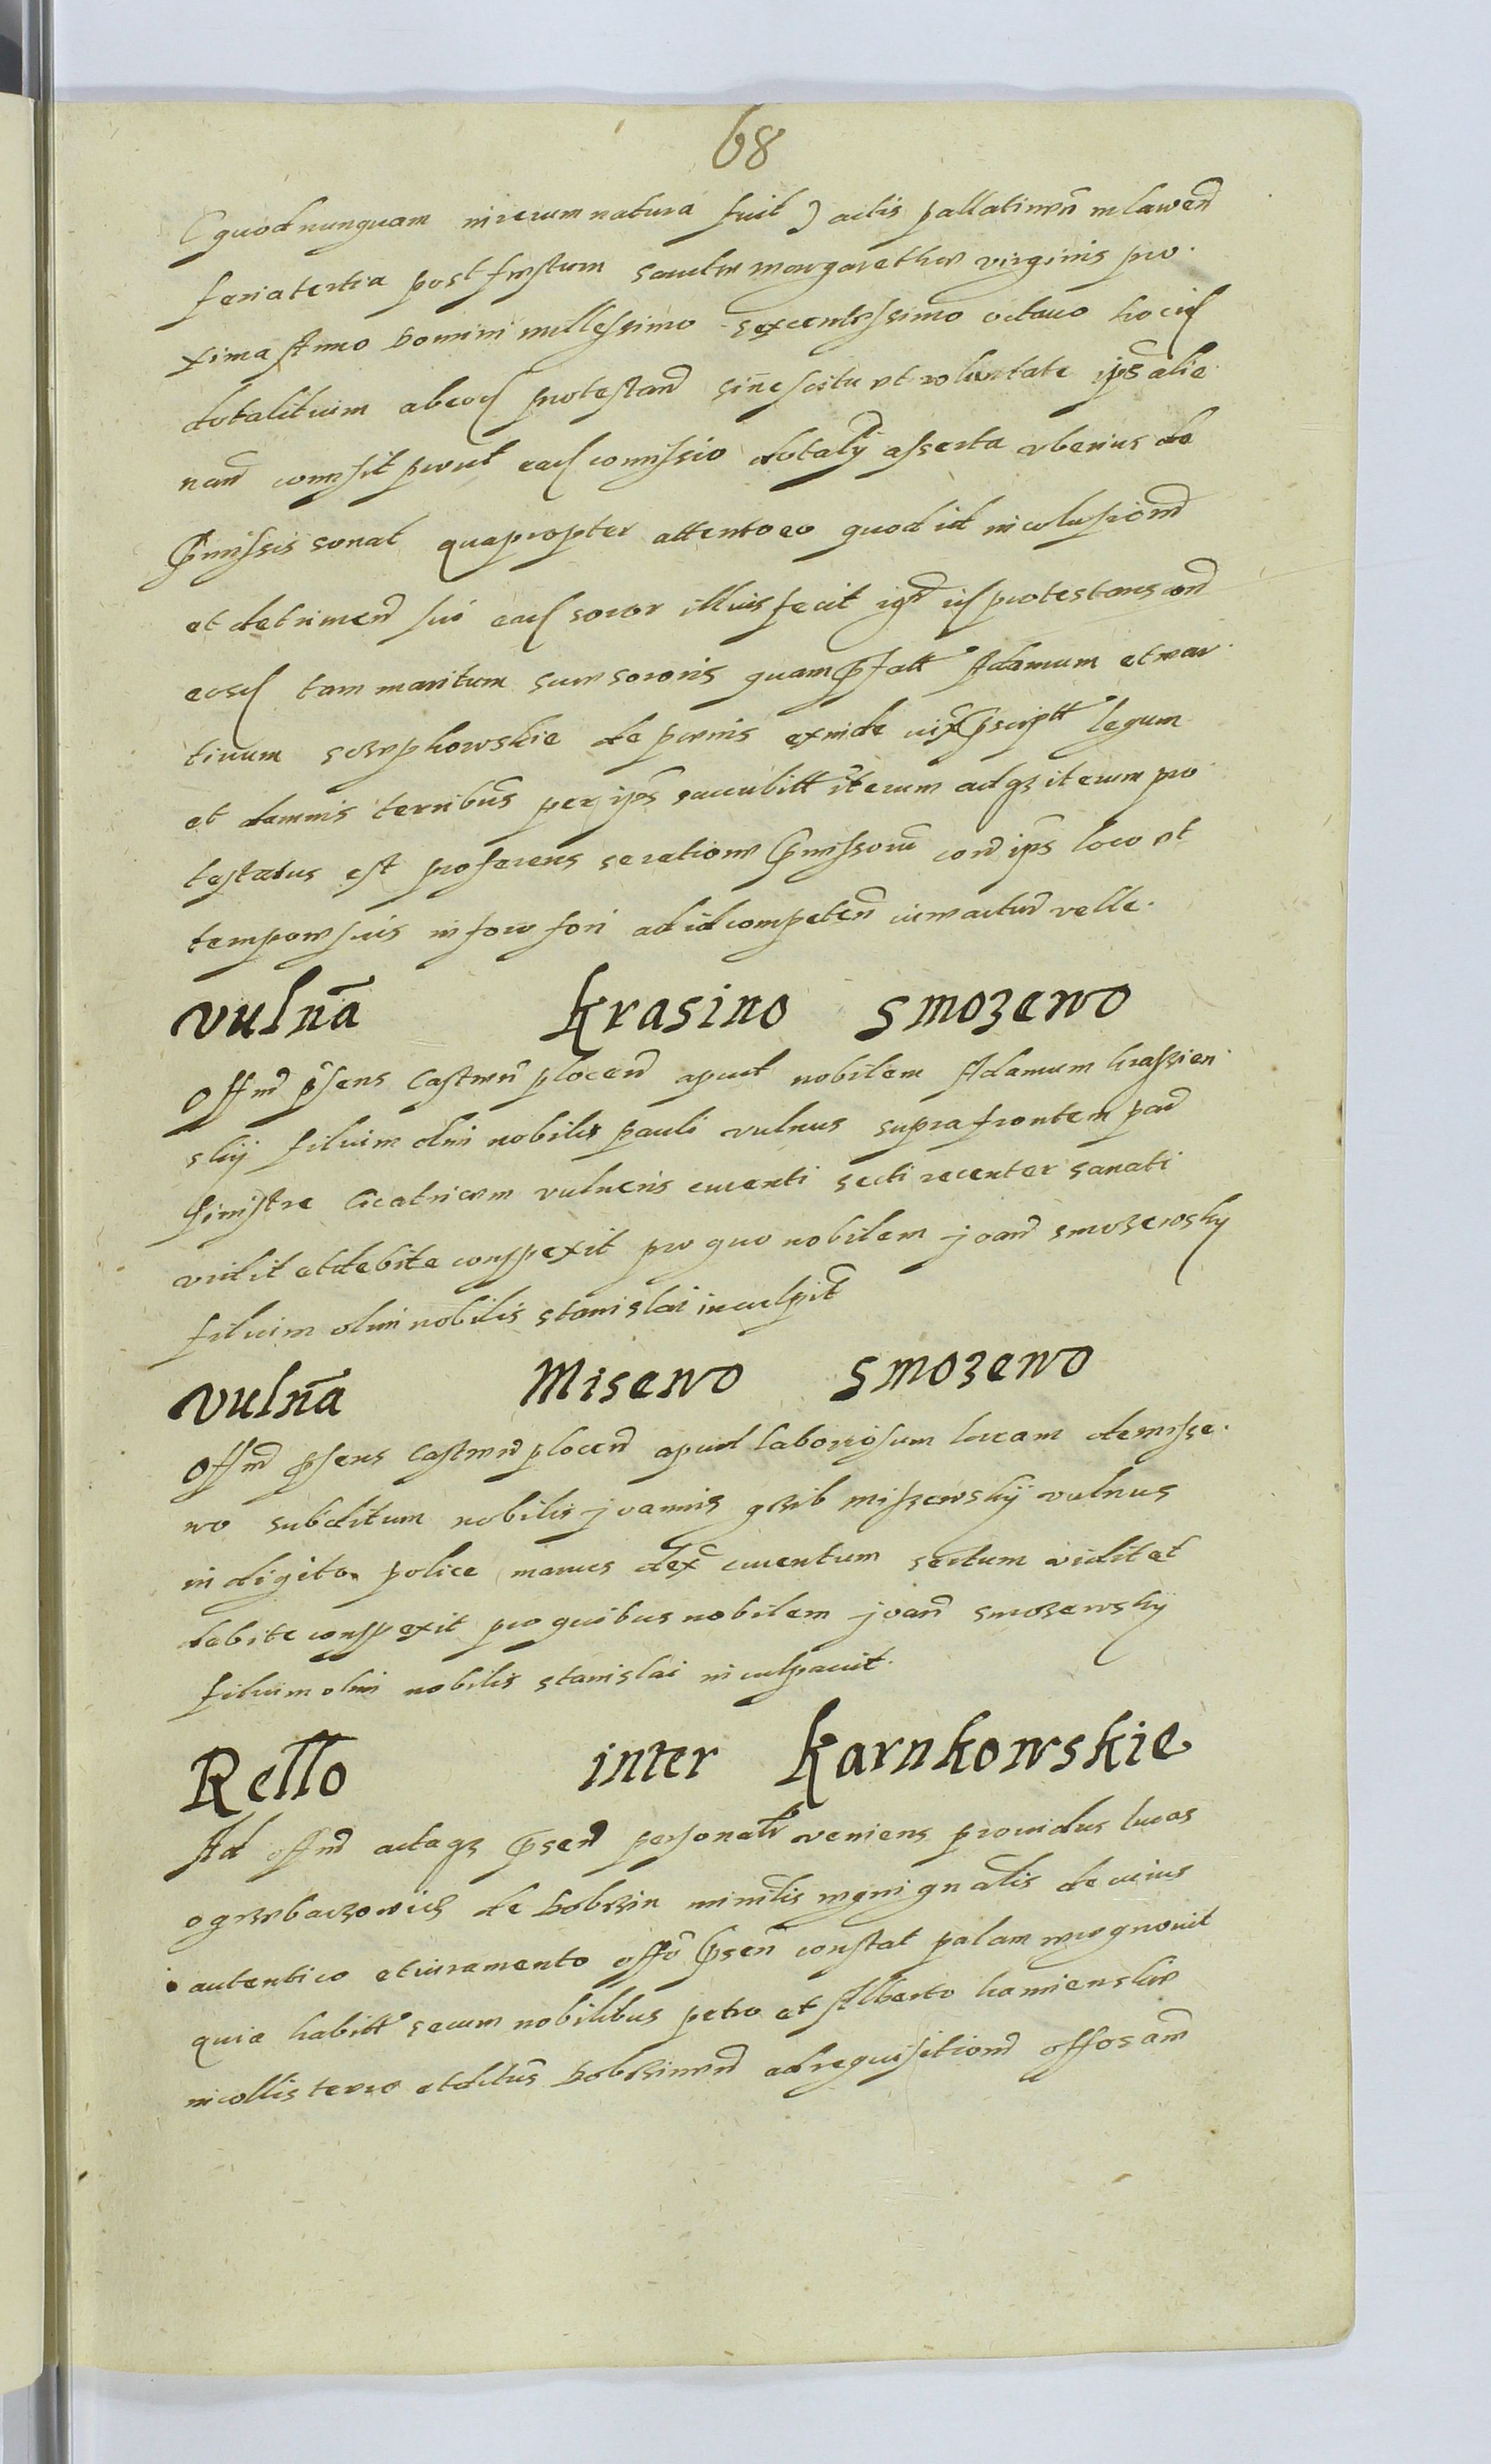 68
(quod nunquam in rerum natura fuit) actis pallatinen̄ mlawen̄
feria tertia post festum sanctæ margarethæ virginis pro
xima Anno Domini millesimo sexcentesimo octauo hocid
dotalitium ab eod protestan̄ sine scitu et voluntate ips alie
nan̄ comisit prout ead comissio dotalÿ asserta vberius de
p̄missis sonat quapropter attento eo quod id in
et detrimen̄ sui ead soror illius fecit id protestans con̄
eosd tam maritum suæ sororis quam p̄fatt Adamum et mar
tinum de pœnis exinde legum
et damnis terribus per ips̄ succubitt iterum adqз iterum pro
testatus est proferens se ratione p̄missorum con̄ ips̄ loco et
tempore suis in foro fori ad id competen̄ iure acturū velle.
vulnā krasino smozewo
Offm̄ p̄sens Castren̄ plocen̄ apud nobilem Adamum krassien
skÿ filium olim nobilis pauli vulnus supra frontem par̄
sinistre Cicatricem vulneris cruenti secti recenter sanati
vidit et debite conspexit pro quo nobilem joan̄ smozewsky
filium olim nobilis stanislai inculpit̄
vulnā Misewo smozewo
Offm̄ p̄sens Castren̄ plocen̄ apud laboriosum lucam de misse
wo subditum nobilis joannis grzib miszewskÿ vulnus
in digito police manus dex̄ cruentum sectum vidit et
debite conspexit pro quibus nobilem joan̄ smozewskÿ
filium olim nobilis stanislai inculpauit.
Rello inter karnkowskie
Ad offm̄ actaqз p̄sen̄ personalr̄ veniens prouidus lucas
ogrzebaczowicz de Dobrzin ministlis gn̄alis de cuius
autentico et iuramento offo p̄sen̄ constat palam recognouit
quia habitt secum nobilibus petro et Alberto kamienskie
in collis terre et Dobrzinen̄ ad requisitionem offosam̄